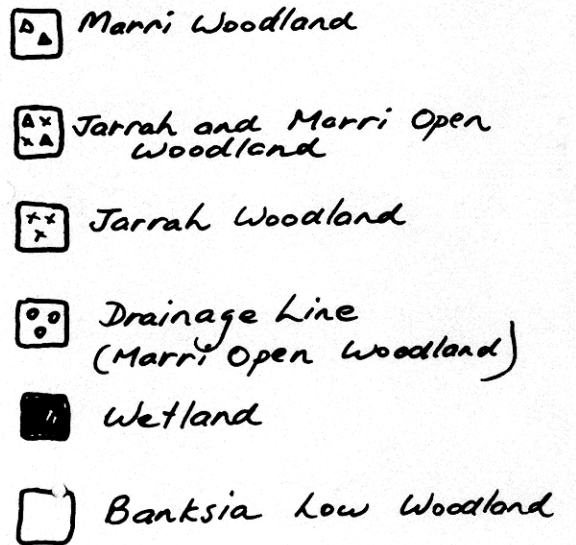 Marri Woodland
Jarrah and Marri Open
Woodland
Jarrah Woodland
Drainage Line
(Marri Open Woodland)
Wetland
Banksia Low Woodland